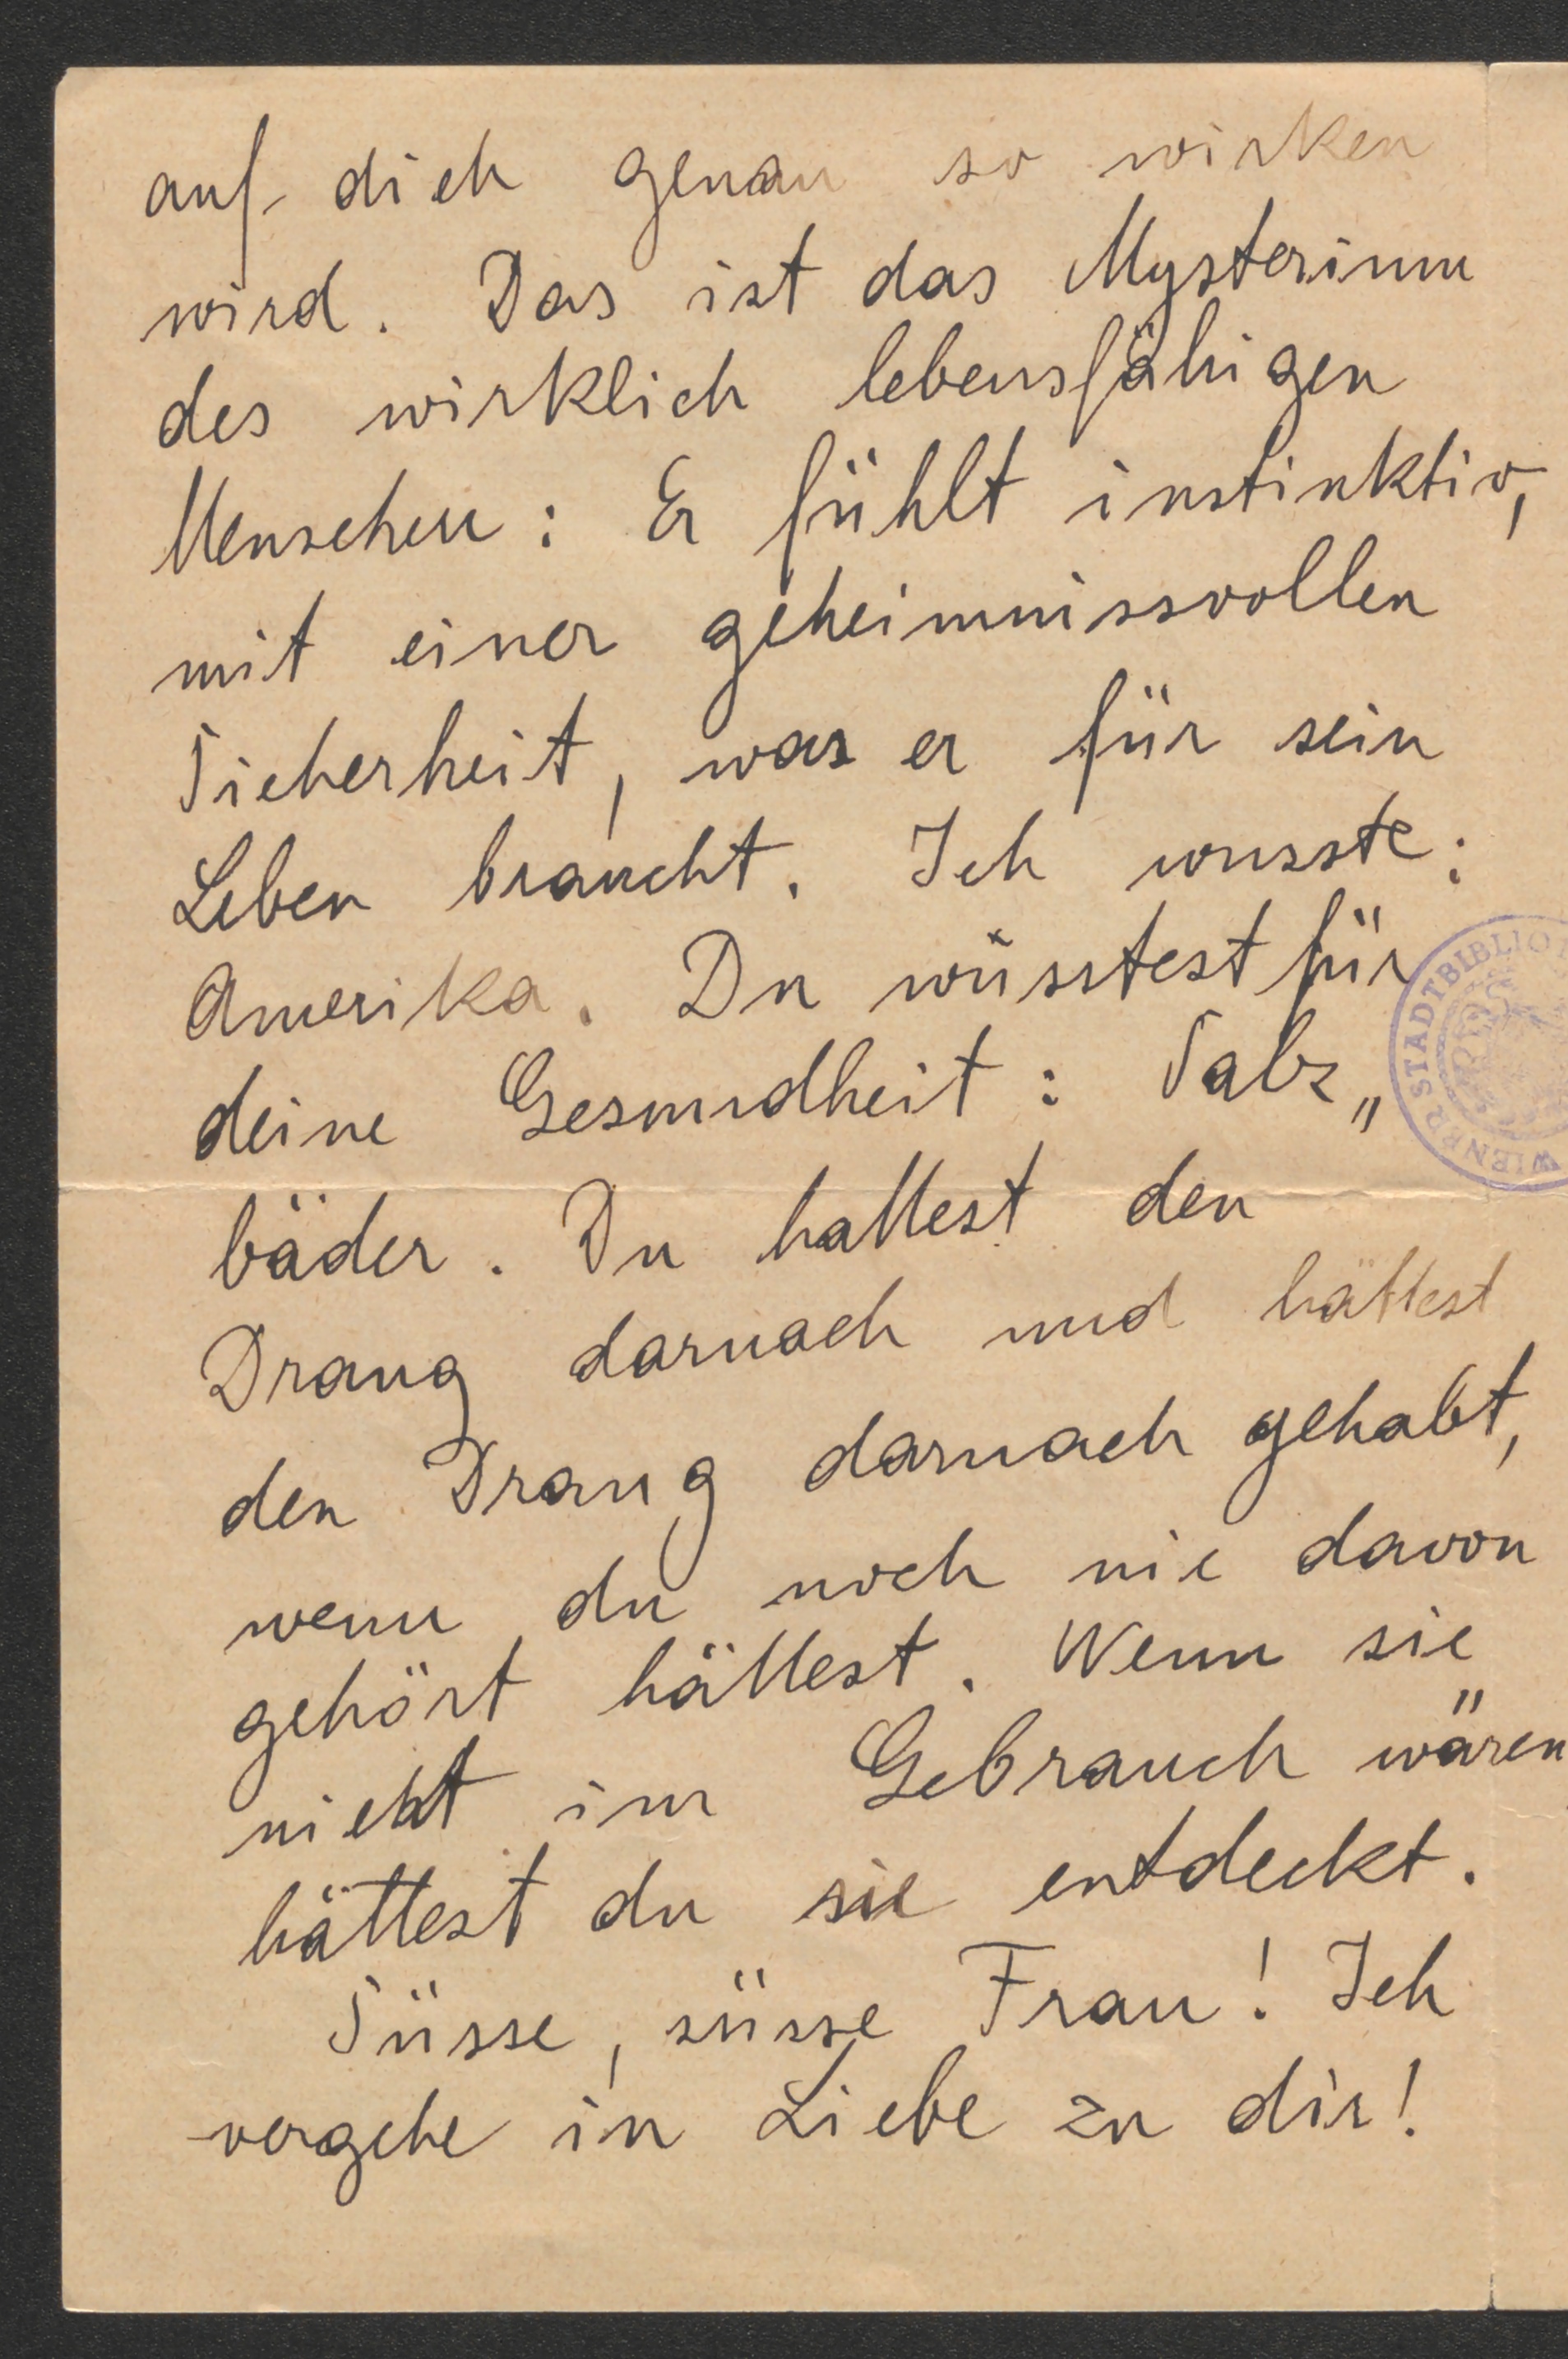 auf dich genau so wirken
wird. Das ist das Mysterium
des wirklich lebensfähigen
Menschen: Er fühlt instinktiv,
mit einer geheimnissvollen
Sicherheit, was er für sein
Leben braucht. Ich wusste:
Amerika. Du wüsstest für
deine Gesundheit: Salz„
bäder. Du hattest den
Drang darnach und hättest
den Drang darnach gehabt,
wenn du noch nie davon
gehört hättest. Wenn sie
nicht im Gebrauch wären
hättest du sie entdeckt.
Süsse, süsse Frau! Ich
vergehe in Liebe zu dir!
WIENER STADTBIBLIOT